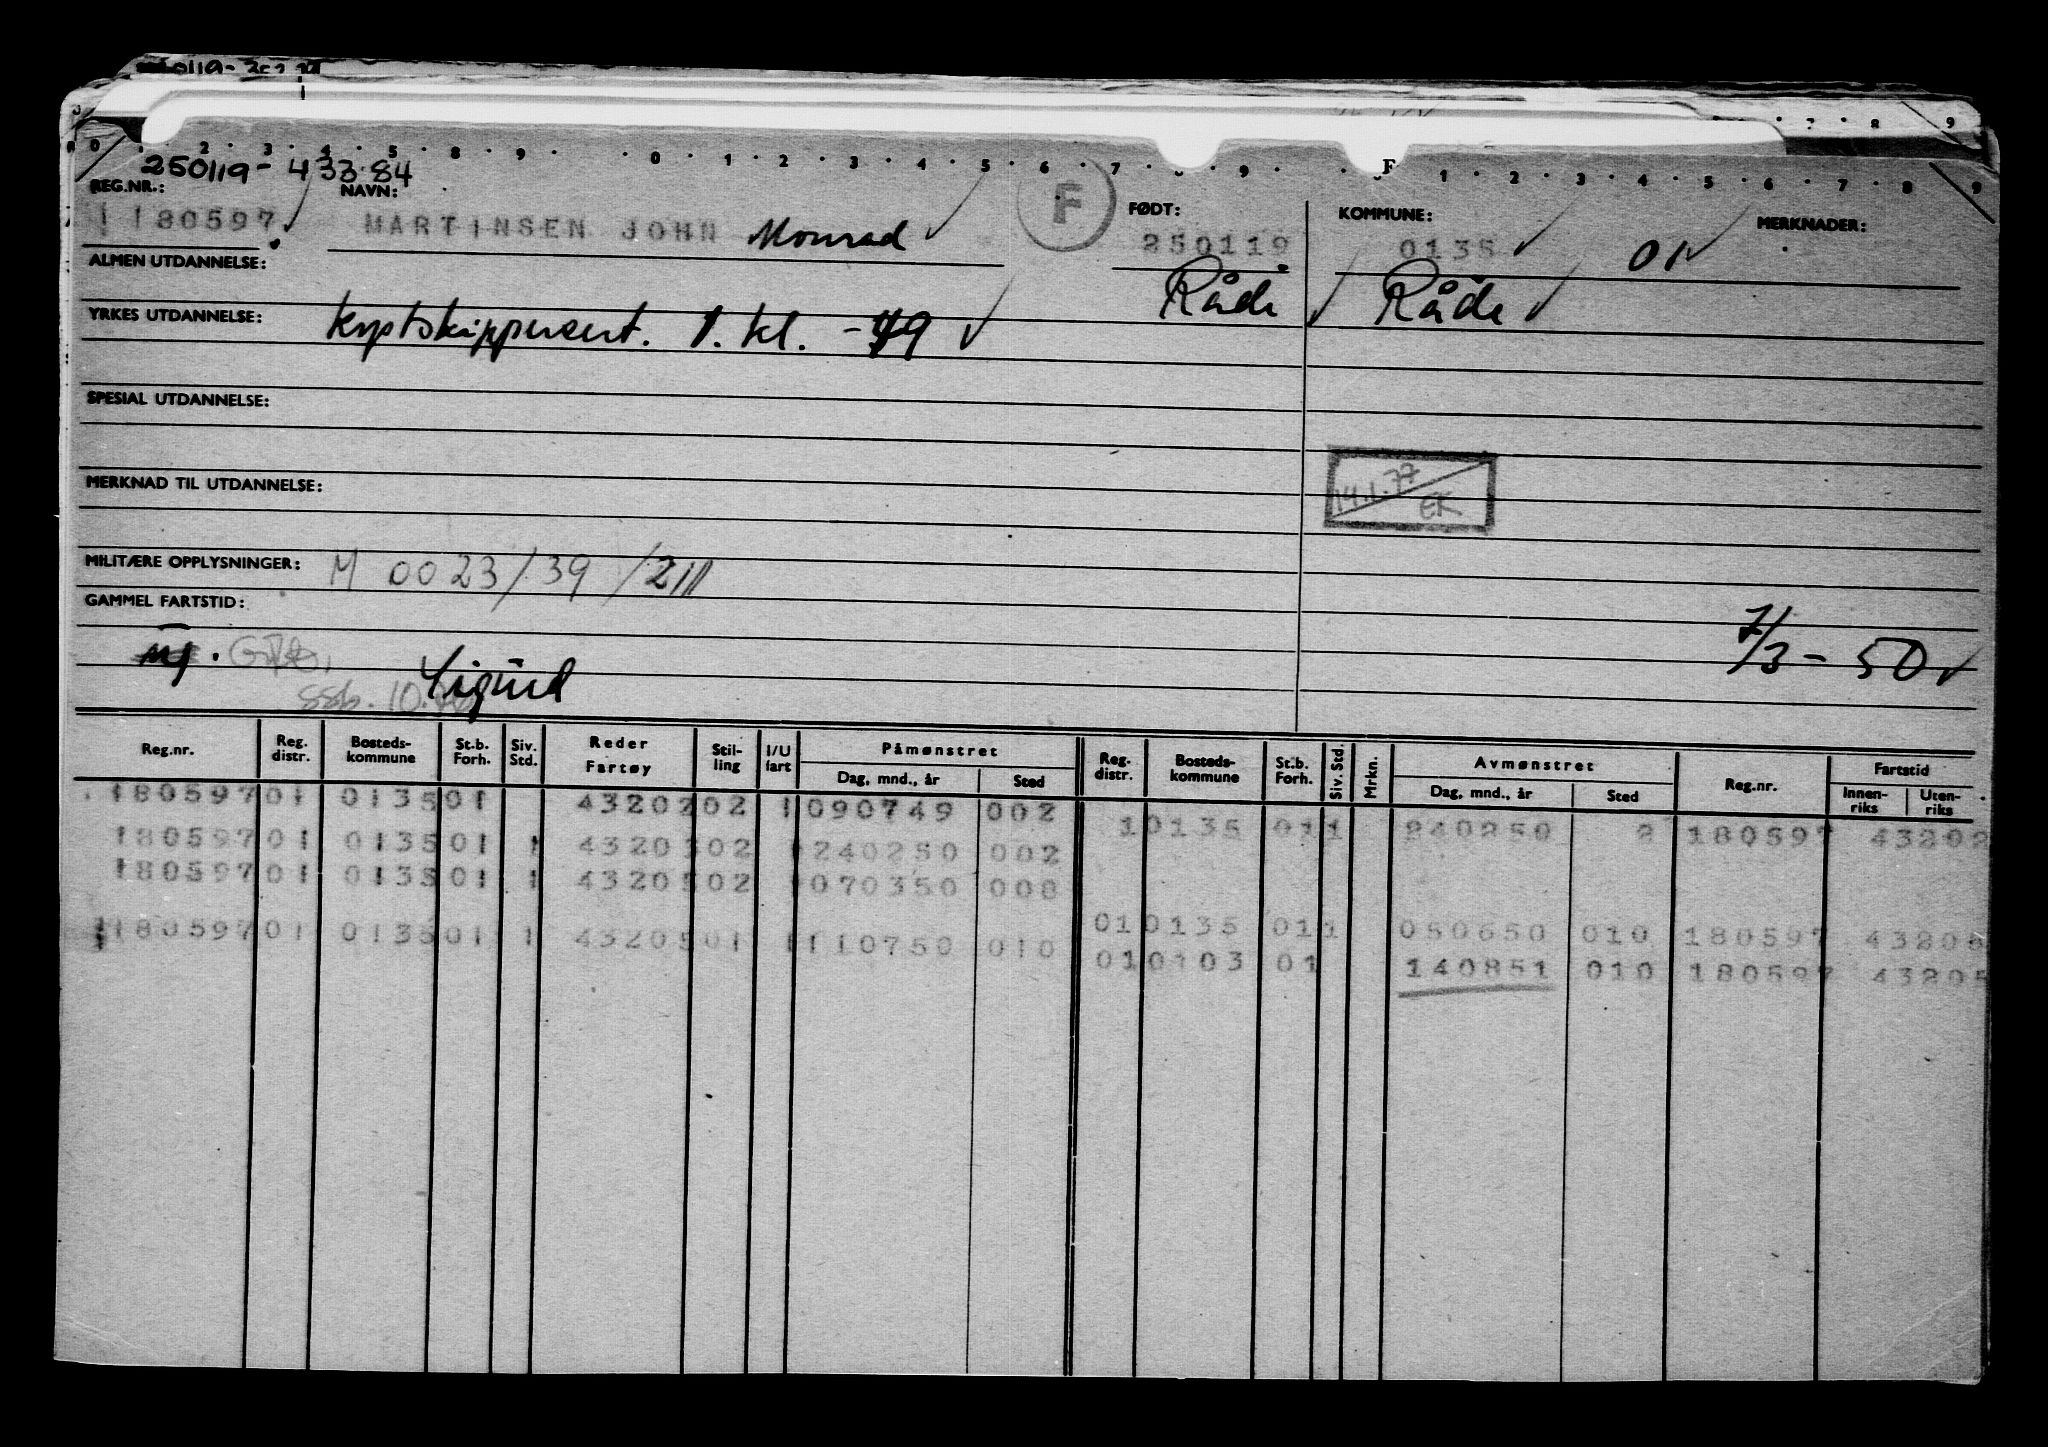 250119-433.84
REG.NR.: NAVN: FØDT: KOMMUNE: MERKNADER:
180597 MARTINSEN JOHN Monrad F 250119 0135 01
ALMEN UTDANNELSE: Råde Råde
YRKES UTDANNELSE: kystskippersert. 1. kl. -49
SPESIAL UTDANNELSE:
14.1.77 EK
MERKNAD TIL UTDANNELSE:
MILITÆRE OPPLYSNINGER: M 0023/39/2111
GAMMEL FARTSTID:
7/3-50
Sigurd
ssb. 10.
Reg.nr. Reg. distr. Bosteds-kommune St.b. Forh. Siv. Std. Reder Fartøy Stil-ling I/U fart Påmønstret Dag, mnd., år Sted Reg. distr. Bosteds-kommune St.b. Forh. Siv. Std. Mrkn. Avmønstret Dag, mnd., år Sted Reg.nr. Fartstid Innen-riks Uten-riks
180597 01 0135 01 43202 02 1 090749 002
1 0135 01 1 240250 2 180597 43202
180597 01 0135 01 1 4320 02 240250 002
180597 01 0135 01 1 43205 02 070350 008
01 0135 01 1 050650 010 180597 43205
180597 01 0135 01 1 43205 01 1 110750 010
01 0103 01 140851 010 180597 43205